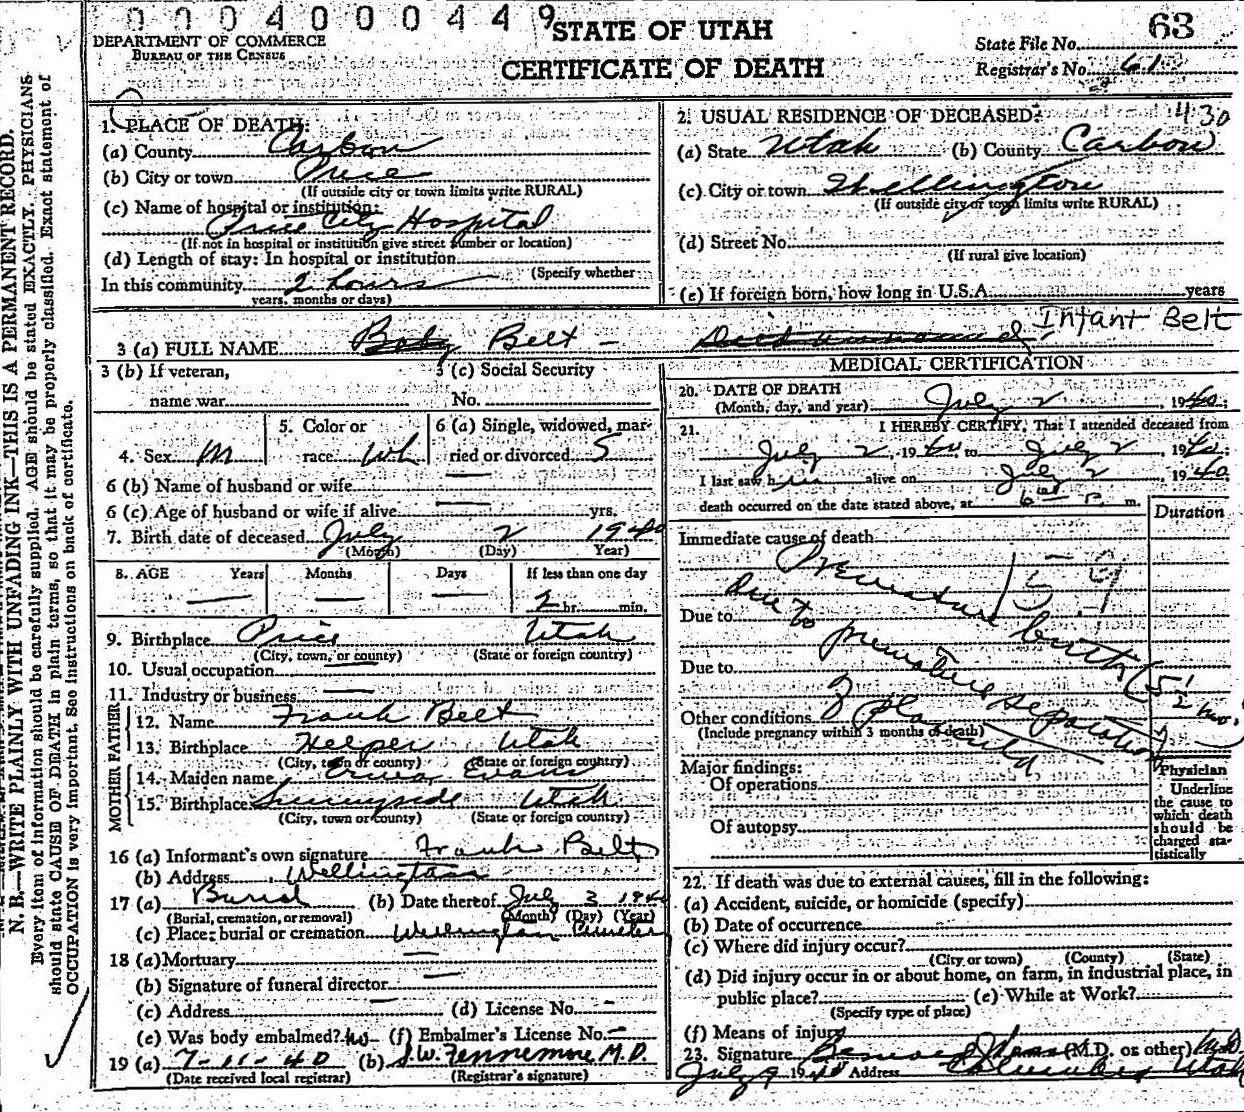 0004000449
STATE OF UTAH
63
DEPARTMENT OF COMMERCE
BUREAU OF THE CENSUS
CERTIFICATE OF DEATH
State File No.
Registrar's No. 61
N. B.—WRITE PLAINLY WITH UNFADING INK—THIS IS A PERMANENT RECORD.
Every item of information should be carefully supplied. AGE should be stated EXACTLY. PHYSICIANS
should state CAUSE OF DEATH in plain terms, so that it may be properly classified. Exact statement of
OCCUPATION is very important. See instructions on back of certificate.
1. PLACE OF DEATH:
(a) County Carbon
(b) City or town Price
(If outside city or town limits write RURAL)
(c) Name of hospital or institution:
Price City Hospital
(If not in hospital or institution give street number or location)
(d) Length of stay: In hospital or institution
(Specify whether
In this community 2 hours
years, months or days)
2. USUAL RESIDENCE OF DECEASED: 430
(a) State Utah (b) County Carbon
(c) City or town Wellington
(If outside city or town limits write RURAL)
(d) Street No.
(If rural give location)
(e) If foreign born, how long in U.S.A. years
3 (a) FULL NAME Baby Belt — Died unnamed Infant Belt
3 (b) If veteran, 3 (c) Social Security
name war No.
4. Sex M 5. Color or race Wh 6 (a) Single, widowed, married or divorced S
6 (b) Name of husband or wife
6 (c) Age of husband or wife if alive yrs.
7. Birth date of deceased July 2 1940
(Month) (Day) Year)
8. AGE Years Months Days If less than one day
2 hr. min.
9. Birthplace Price Utah
(City, town, or county) (State or foreign country)
10. Usual occupation
11. Industry or business
FATHER
12. Name Frank Belt
13. Birthplace Helper Utah
(City, town or county) (State or foreign country)
MOTHER
14. Maiden name Evans
15. Birthplace Sunnyside Utah
(City, town or county) (State or foreign country)
16 (a) Informant's own signature Frank Belt
(b) Address Wellington
17 (a) Burial (b) Date thereof July 3 1940
(Burial, cremation, or removal) (Month) (Day) (Year)
(c) Place: burial or cremation Wellington Cemetery
18 (a) Mortuary
(b) Signature of funeral director
(c) Address (d) License No.
(e) Was body embalmed? no (f) Embalmer's License No.
19 (a) 7-11-40 (b) J.W. Fennemore M.D.
(Date received local registrar) (Registrar's signature)
MEDICAL CERTIFICATION
20. DATE OF DEATH
(Month, day, and year) July 2, 1940;
21. I HEREBY CERTIFY, That I attended deceased from
July 2, 1940 to July 2, 1940;
I last saw him alive on July 2 1940;
death occurred on the date stated above, at P. m.
Duration
Immediate cause of death
Premature birth (5 1/2 mo.)
159
Due to
due to premature separation
Due to
of placenta
Other conditions
(Include pregnancy within 3 months of death)
Major findings:
Of operations
Of autopsy
Physician
Underline
the cause to
which death
should be
charged sta-
tistically
22. If death was due to external causes, fill in the following:
(a) Accident, suicide, or homicide (specify)
(b) Date of occurrence
(c) Where did injury occur?
(City or town) (County) (State)
(d) Did injury occur in or about home, on farm, in industrial place, in
public place? (e) While at Work?
(Specify type of place)
(f) Means of injury
23. Signature (M.D. or other) M.D.
July 9 1940 Address Columbia Utah